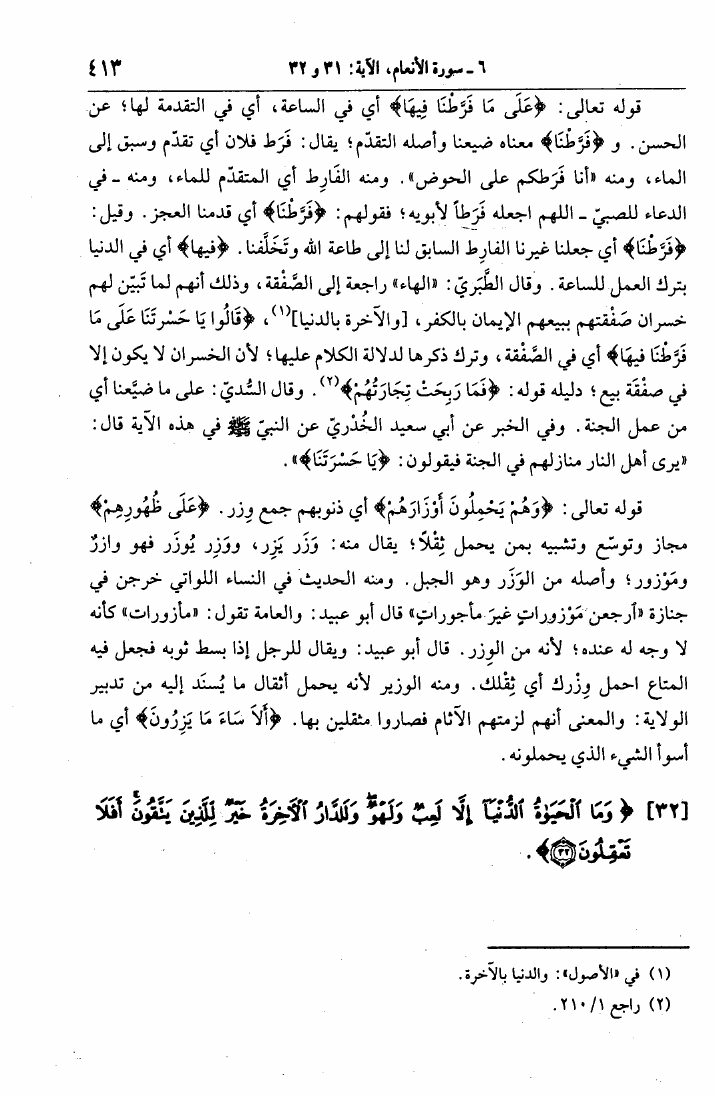 ٦ ـ سورة الأنعام، الآية: ٣١ و ٣٢
٤١٣
قوله تعالى: ﴿عَلَى مَا فَرَّطْنَا فِيهَا﴾ أي في الساعة، أي في التقدمة لها؛ عن
الحسن. و ﴿فَرَّطْنَا﴾ معناه ضيعنا وأصله التقدّم؛ يقال: فَرَط فلان أي تقدّم وسبق إلى
الماء، ومنه «أنا فَرَطكم على الحوض». ومنه الفَارِط أي المتقدّم للماء، ومنه ـ في
الدعاء للصبيّ ـ اللهم اجعله فَرَطاً لأبويه؛ فقولهم: ﴿فَرَّطْنَا﴾ أي قدمنا العجز. وقيل:
﴿فَرَّطْنَا﴾ أي جعلنا غيرنا الفارط السابق لنا إلى طاعة الله وتَخَلَّفنا. ﴿فيها﴾ أي في الدنيا
بترك العمل للساعة. وقال الطَّبَريّ: «الهاء» راجعة إلى الصَّفْقة، وذلك أنهم لما تَبيّن لهم
خسران صَفْقتهم ببيعهم الإيمان بالكفر، [والآخرة بالدنيا](١)، ﴿قَالُوا يَا حَسْرتَنَا عَلَى مَا
فَرَّطْنَا فيهَا﴾ أي في الصَّفْقة، وترك ذكرها لدلالة الكلام عليها؛ لأن الخسران لا يكون إلا
في صفْقَة بيع؛ دليله قوله: ﴿فَمَا رَبِحَتْ تِجَارَتُهُمْ﴾(٢). وقال السُّديّ: على ما ضيَّعنا أي
من عمل الجنة. وفي الخبر عن أبي سعيد الخُدْريّ عن النبيّ ﷺ في هذه الآية قال:
«يرى أهل النار منازلهم في الجنة فيقولون: ﴿يَا حَسْرَتَنَا﴾».
قوله تعالى: ﴿وَهُمْ يَحْمِلُونَ أَوْزَارَهُمْ﴾ أي ذنوبهم جمع وِزر. ﴿عَلَى ظُهُورِهِمْ﴾
مجاز وتوسّع وتشبيه بمن يحمل ثِقْلاً؛ يقال منه: وَزَر يَزِر، ووَزِر يُوزَر فهو وازرٌ
ومَوْزور؛ وأصله من الوَزَر وهو الجبل. ومنه الحديث في النساء اللواتي خرجن في
جنازة «ارجعن مَوْزوراتٍ غيرَ مأجوراتٍ» قال أبو عبيد: والعامة تقول: «مأزورات» كأنه
لا وجه له عنده؛ لأنه من الوِزر. قال أبو عبيد: ويقال للرجل إذا بسط ثوبه فجعل فيه
المتاع احمل وِزْرك أي ثِقْلك. ومنه الوزير لأنه يحمل أثقال ما يُسنَد إليه من تدبير
الولاية: والمعنى أنهم لزمتهم الآثام فصاروا مثقلين بها. ﴿أَلاَ سَاءَ مَا يَزِرُونَ﴾ أي ما
أسوأ الشيء الذي يحملونه.
[٣٢] ﴿وَمَا ٱلْحَيَوٰةُ ٱلدُّنْيَآ إِلَّا لَعِبٌ وَلَهْوٌ ۖ وَلَلدَّارُ ٱلْآخِرَةُ خَيْرٌ لِّلَّذِينَ يَتَّقُونَ ۚ أَفَلَا
تَعْقِلُونَ ۝٣٢﴾.
(١) في «الأصول»: والدنيا بالآخرة.
(٢) راجع ١/ ٢١٠.